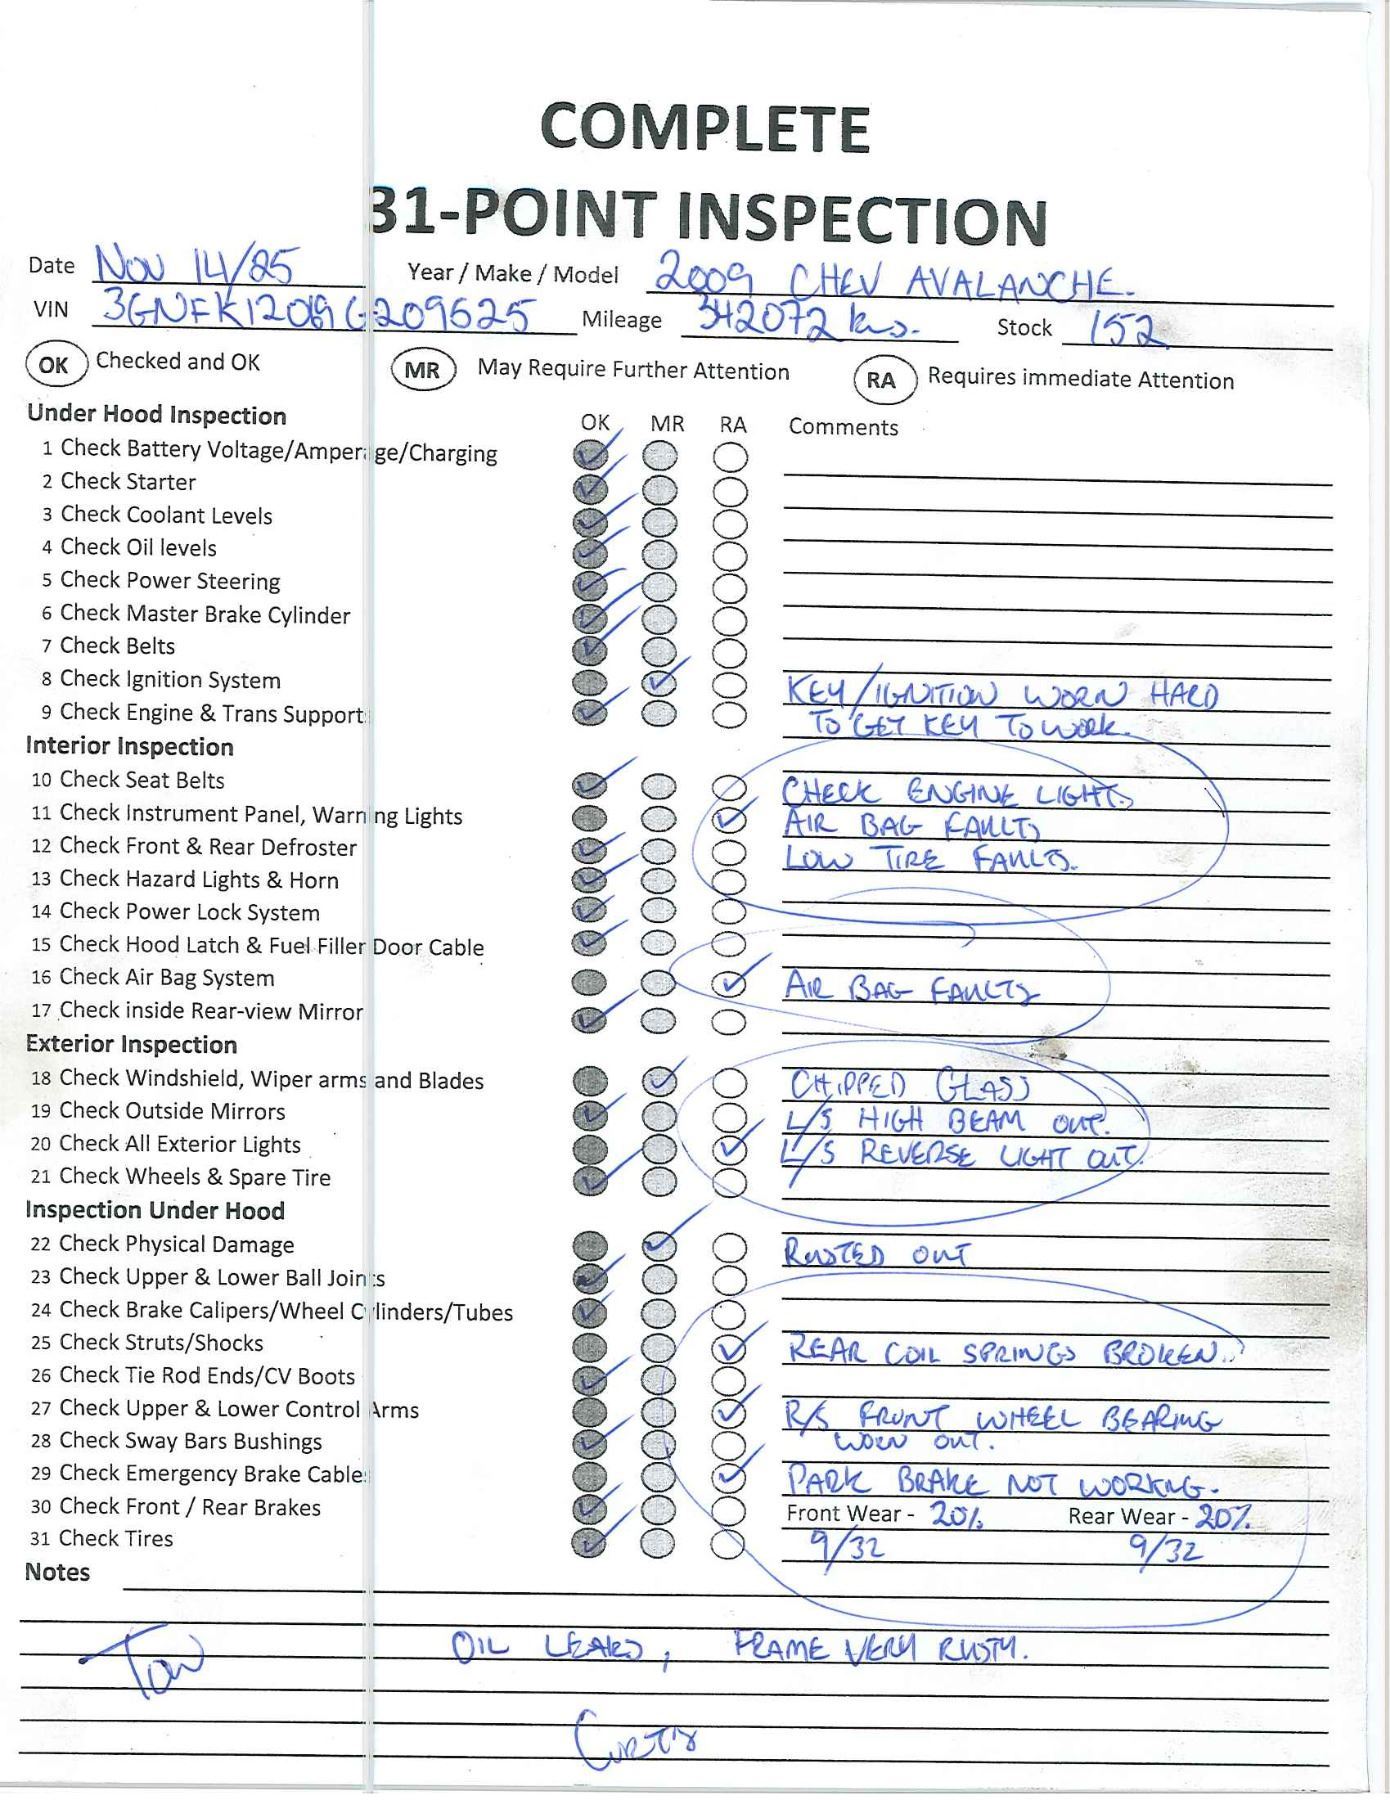 COMPLETE
31-POINT INSPECTION
Date Nov 14/25 Year / Make / Model 2009 CHEV AVALANCHE.
VIN Mileage 342072 kms. Stock 152
OK Checked and OK MR May Require Further Attention RA Requires immediate Attention
Under Hood Inspection OK MR RA Comments
1 Check Battery Voltage/Amperage/Charging
2 Check Starter
3 Check Coolant Levels
4 Check Oil levels
5 Check Power Steering
6 Check Master Brake Cylinder
7 Check Belts
8 Check Ignition System KEY/IGNITION WORN HARD
9 Check Engine & Trans Support TO GET KEY TO WORK.
Interior Inspection
10 Check Seat Belts CHECK ENGINE LIGHT.
11 Check Instrument Panel, Warning Lights AIR BAG FAULTS
12 Check Front & Rear Defroster LOW TIRE FAULTS.
13 Check Hazard Lights & Horn
14 Check Power Lock System
15 Check Hood Latch & Fuel Filler Door Cable
16 Check Air Bag System AIR BAG FAULTS
17 Check inside Rear-view Mirror
Exterior Inspection
18 Check Windshield, Wiper arms and Blades CHIPPED GLASS
19 Check Outside Mirrors L/S HIGH BEAM OUT.
20 Check All Exterior Lights L/S REVERSE LIGHT OUT.
21 Check Wheels & Spare Tire
Inspection Under Hood
22 Check Physical Damage RUSTED OUT
23 Check Upper & Lower Ball Joints
24 Check Brake Calipers/Wheel Cylinders/Tubes
25 Check Struts/Shocks REAR COIL SPRINGS BROKEN.
26 Check Tie Rod Ends/CV Boots
27 Check Upper & Lower Control Arms R/S FRONT WHEEL BEARING
28 Check Sway Bars Bushings WORN OUT.
29 Check Emergency Brake Cable PARK BRAKE NOT WORKING.
30 Check Front / Rear Brakes Front Wear - 20% Rear Wear - 20%
31 Check Tires 9/32 9/32
Notes
OIL LEAKS, FRAME VERY RUSTY.
Curtis